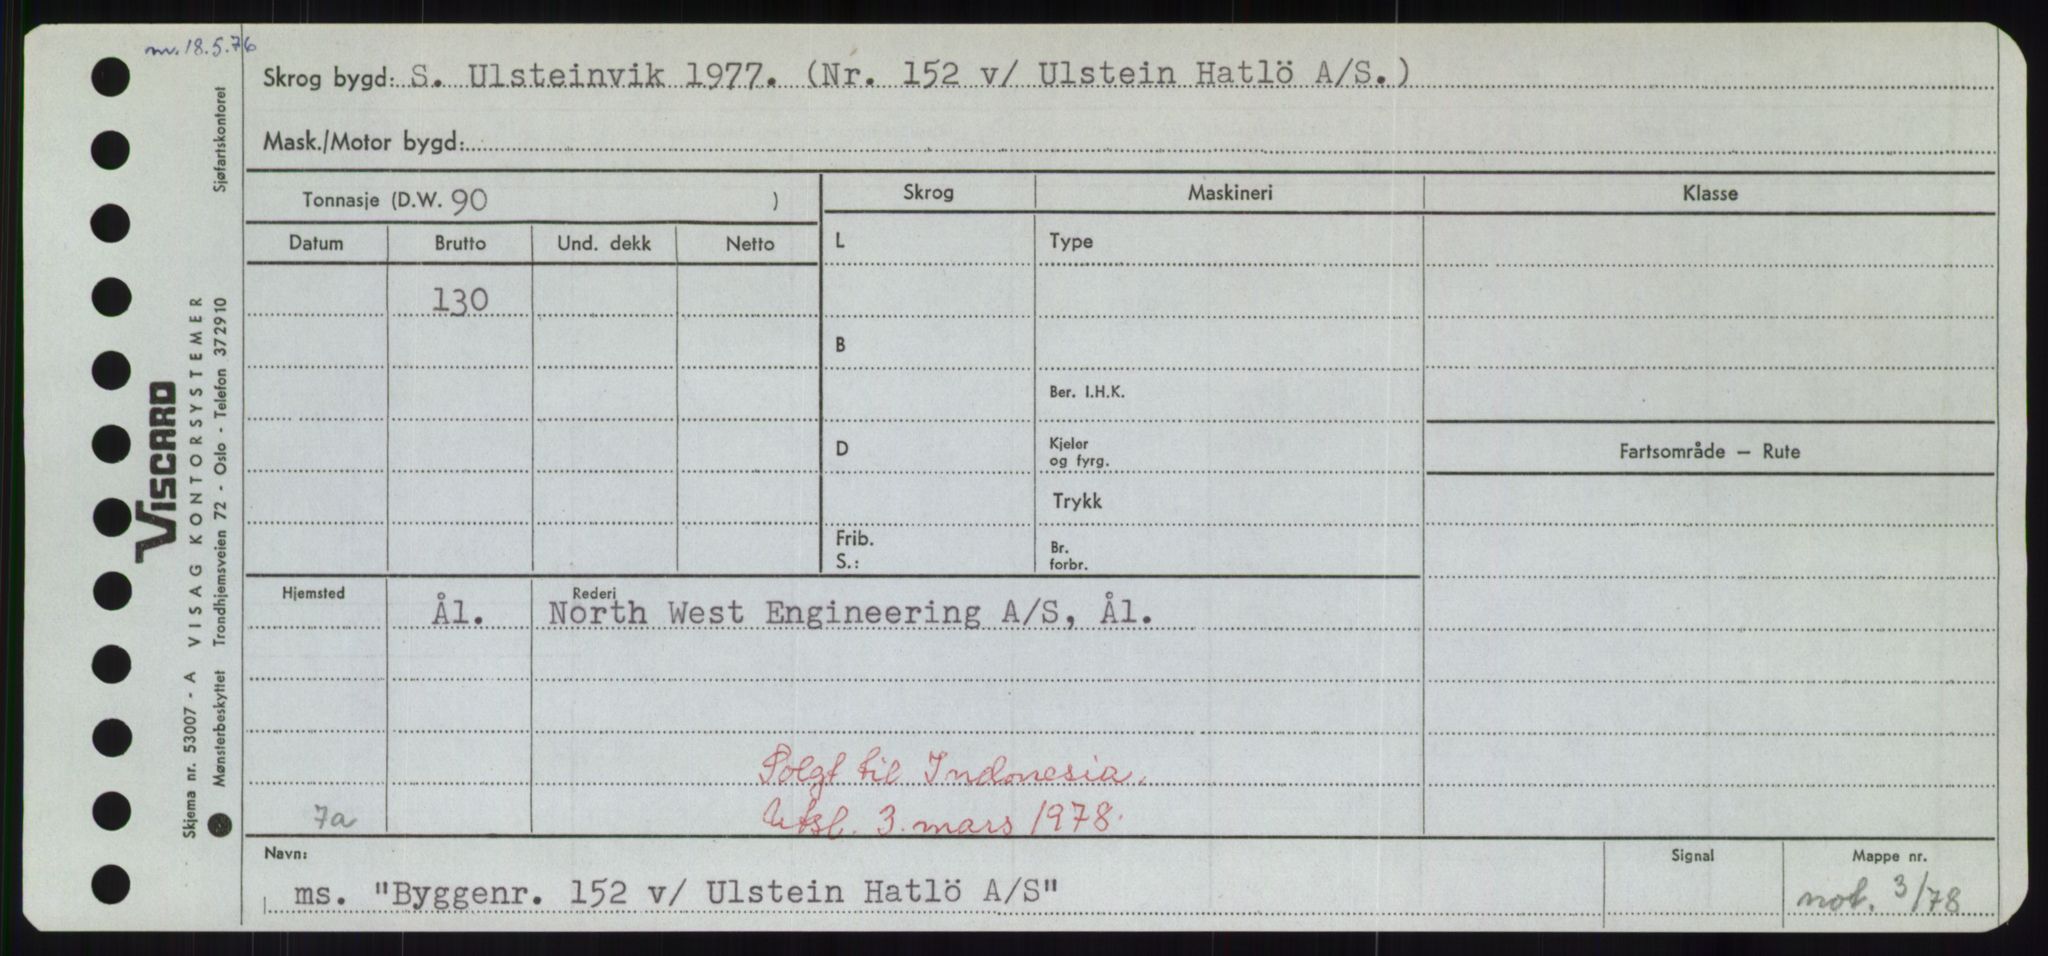 nv. 18.5.76
Skrog bygd: S. Ulsteinvik 1977. (Nr. 152 v/ Ulstein Hatlö A/S.)
Mask./Motor bygd:
Tonnasje (D.W. 90 )
Skrog Maskineri Klasse
Datum Brutto Und. dekk Netto
L Type
130
B
Ber. I.H.K.
D Kjeler og fyrg.
Fartsområde — Rute
Trykk
Frib.
S.:
Br. forbr.
Hjemsted Rederi
Ål. North West Engineering A/S, Ål.
Solgt til Indonesia.
7a Utsl. 3. mars 1978.
Navn: Signal Mappe nr.
ms. "Byggenr. 152 v/ Ulstein Hatlö A/S" not. 3/78
VISCARD
VISAG KONTORSYSTEMER
Skjema nr. 53007 - A
Mønsterbeskyttet Trondhjemsveien 72 - Oslo - Telefon 372910 Sjøfartskontoret